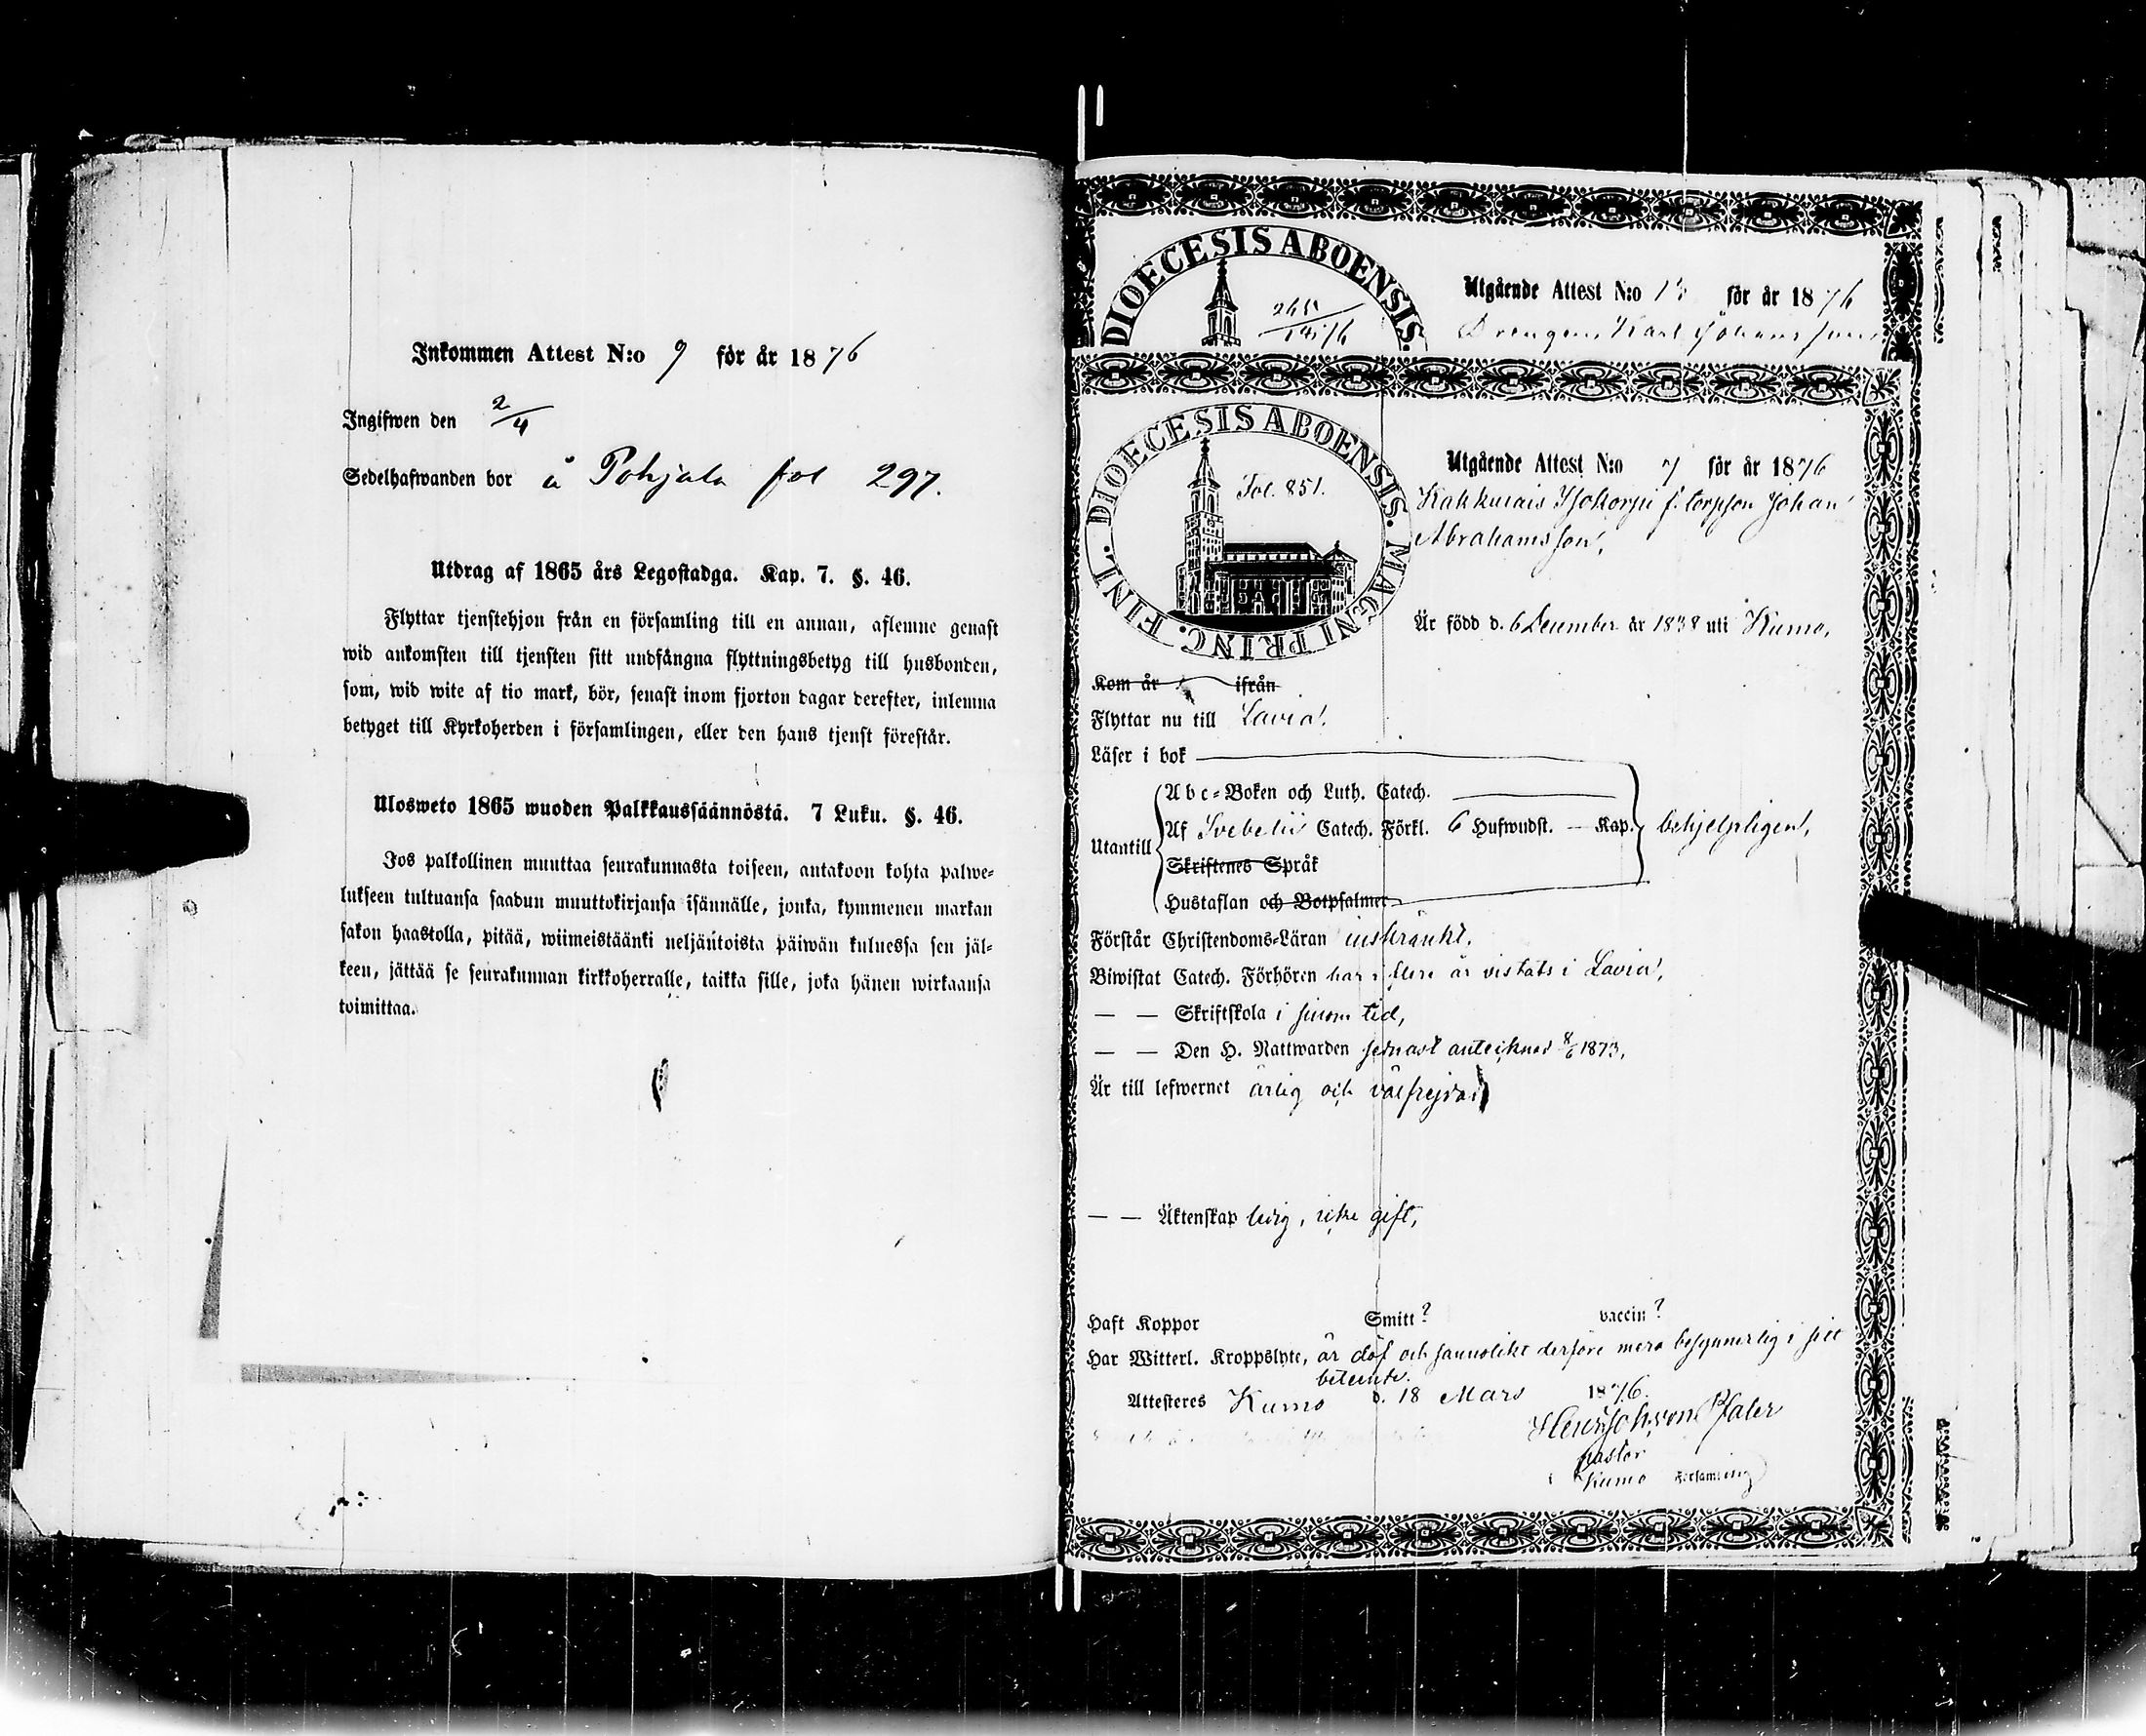 Inkommen Attest N:o 9 för år 1876
Ingifwen den 2/4
Sedelhafwanden bor å Pohjala fol 297.
Utdrag af 1865 års Legostadga. Kap. 7. §. 46.
Flyttar tjenstehjon från en församling till en annan, aflemne genast
wid ankomsten till tjensten sitt undfångna flyttningsbetyg till husbonden,
som, wid wite af tio mark, bör, senast inom fjorton dagar derefter, inlemna
betyget till Kyrkoherden i församlingen, eller den hans tjenst förestår.
Ulosweto 1865 wuoden Palkkaussäännöstä. 7 Luku. §. 46.
Jos palkollinen muuttaa seurakunnasta toiseen, antakoon kohta palwe-
lukseen tultuansa saadun muuttokirjansa isännälle, jonka, kymmenen markan
sakon haastolla, pitää, wiimeistäänki neljäntoista päiwän kuluessa sen jäl-
keen, jättää se seurakunnan kirkkoherralle, taikka sille, joka hänen wirkaansa
toimittaa.
DIOECESIS ABOENSIS.
Utgående Attest N:o 13 för år 1876
Drengen Karl Johansson
DIOECESIS ABOENSIS. MAGNI PRINC. FINL.
Fol. 851.
Utgående Attest N:o 7 för år 1876
Kakkulais torpson Johan
Abrahamsson,
Är född d. 6 December år 1838 uti Kumo,
Kom år ifrån
Flyttar nu till Lavia,
Läser i bok
Utantill
Abc-Boken och Luth. Catech.
Af Svebelii Catech. Förkl. 6 Hufwudst. — Kap. behjelpligen,
Skriftenes Språk
Hustaflan och Botpsalmer
Förstår Christendoms-Läran inskränkt,
Biwistat Catech. Förhören har i flere år vistats i Lavia,
— — Skriftskola i sinom tid,
— — Den H. Nattwarden senast antecknad 8/6 1873,
Är till lefwernet ärlig och välfrejdad
— — Äktenskap ledig, icke gift,
Haft Koppor Smitt? vaccin?
Har Witterl. Kroppslyte, är döf och sannolikt derföre mera besynnerlig i sitt
beteende.
Attesteres Kumo d. 18 Mars 1876.
Henr Joh von Pfaler
pastor
i Kumo Församling